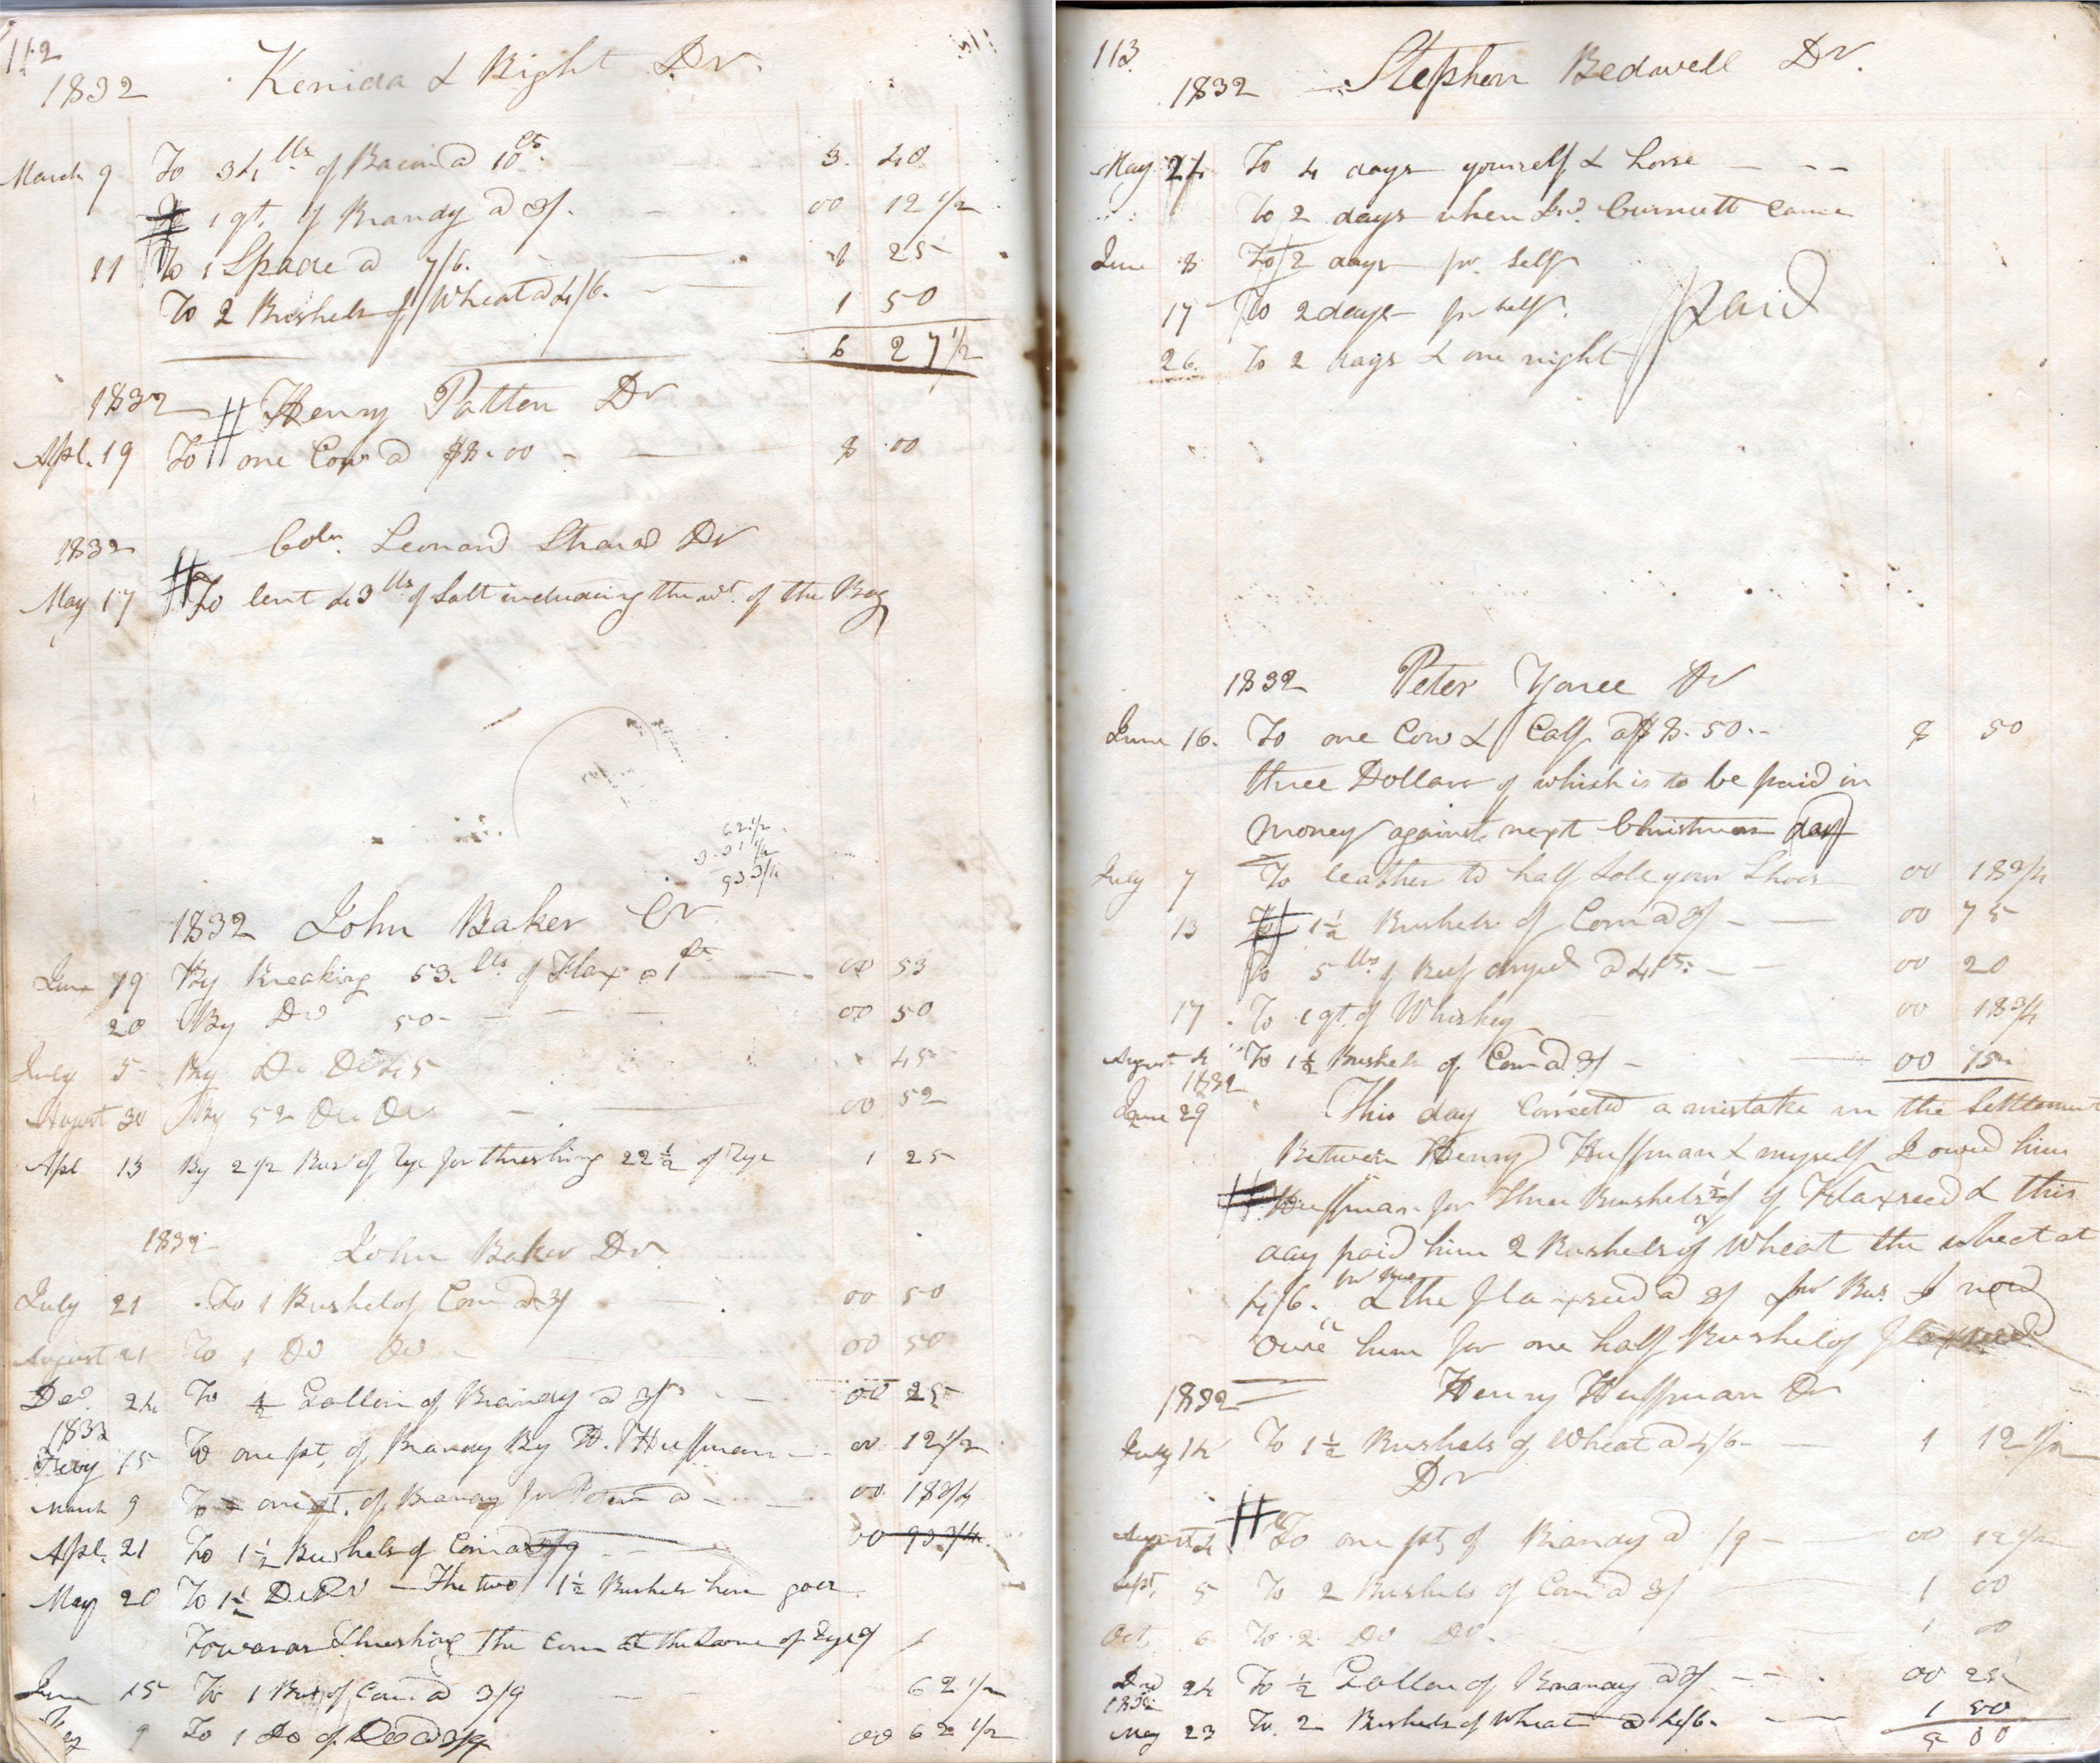 112
1832 Kenida & Bight Dr.
March 9 To 34 lbs of Bacon @ 10 cts. 3. 40
To 1 qt. of Brandy @ 3/. 00 12 1/2
11 To 1 Spade @ 7/6. 1 25
To 2 Bushels of Wheat @ 4/6. 1 50
6 27 1/2
1832 Henry Patten Dr
Apl. 19 To one Cow @ $8.00 8 00
1832 Coln. Leonard Dr
May 17 To lent 43 lbs of Salt including the wt. of the Bag
62 1/2
3. 31 1/4
93 3/4
1832 John Baker Cr
June 19 By Breaking 53. lbs of Flax @ 1 ct 00 53
20 By Do 50 00 50
July 5 By Do Do 45 45
August 30 By 52 Do Do 00 52
Apl 13 By 2 1/2 Bus. of Rye for threshing 22 1/2 of Rye 1 25
1832 John Baker Dr.
July 21 To 1 Bushel of Corn @ 3/ 00 50
August 21 To 1 Do Do 00 50
Decr. 24 To 1/2 Gallon of Brandy @ 3/ 00 25
1833
Feby 15 To one pt. of Brandy By H. Huffman 00 12 1/2
March 9 To one qt. of Brandy for Peter @ 00. 18 3/4
Apl. 21 To 1 1/2 Bushels of Corn @ 3/9 00 93 3/4
May 20 To 1 1/2 Do Do The two 1 1/2 Bushels here goes
Towards Threshing the Corn at the Same of Rye
June 15 To 1 Bus of Corn @ 3/9 62 1/2
9 To 1 Do of Do @ 3/9 00 62 1/2
113.
1832 Stephen Bedwell Dr.
May 24 To 4 days yourself & horse
To 2 days when Burnett Came
June 8 To 2 days pr. Self
17 To 2 days pr Self. Paid
26. To 2 days & one night
1832 Peter Yonce Dr
June 16. To one Cow & Calf @ $8.50. 8 50
three Dollars of which is to be paid in
money against next Christmas day
July 7 To leather to half Sole your Shoes 00 18 3/4
13 To 1 1/2 Bushels of Corn @ 3/ 00 75
To 5 lbs of Beef dryed @ 4 cts. 00 20
17. To 1 qt. of Whiskey 00 18 3/4
August 4 To 1 1/2 Bushels of Corn @ 3/ 00 75
1832
June 29 This day Corrected a mistake in the Settlement
Between Henry Huffman & myself I owed him
Huffman for three Bushels 1/2 of Flaxseed & this
day paid him 2 Bushels of Wheat the wheat at
4/6. pr Bus & the flaxseed @ 3/ pr Bus. I now
owe him for one half Bushel of flaxseed
1832 Henry Huffman Dr
July 14 To 1 1/2 Bushels of Wheat @ 4/6 1 12 1/2
Dr
August 4 To one pt. of Brandy @ /9 00 12 1/2
Sept, 5 To 2 Bushels of Corn @ 3/ 1 00
Oct 6 To 2 Do Do. 1 00
Decr 24 To 1/2 Gallon of Brandy @ 3/. 00 25
1833
May 23 To 2 Bushels of Wheat @ 4/6. 1 50
5 00